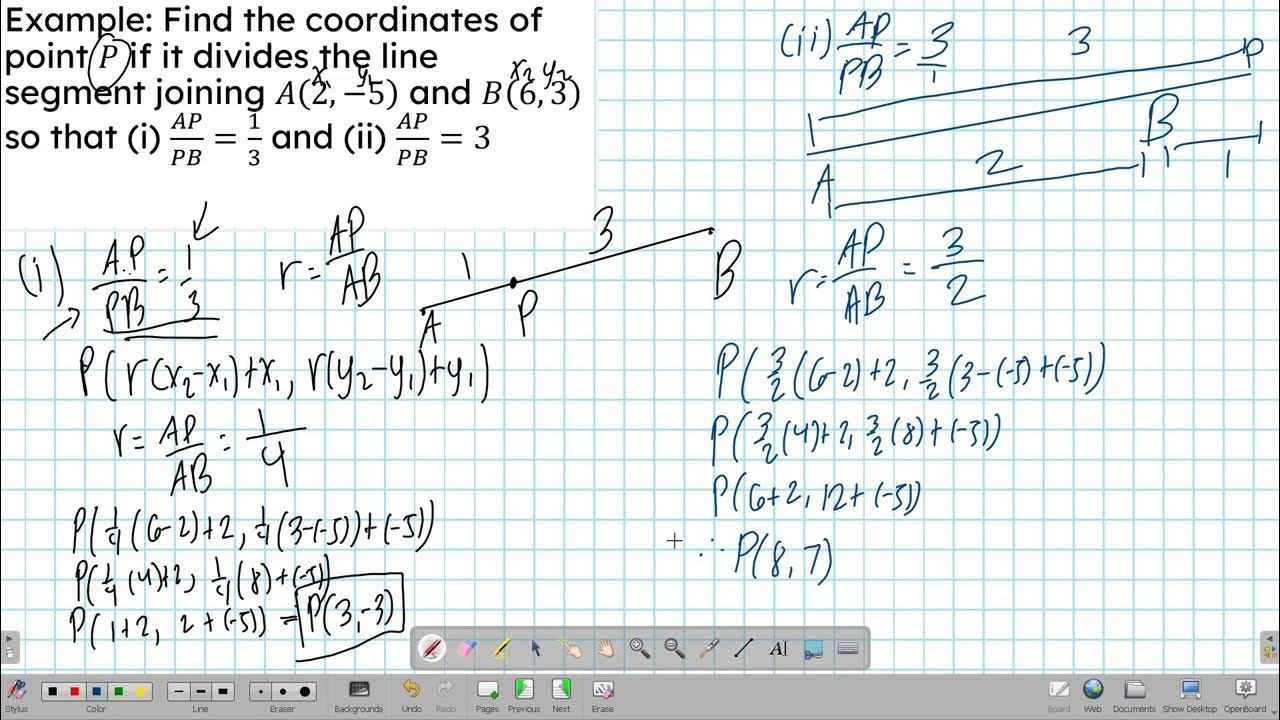 Example: Find the coordinates of
point P if it divides the line
segment joining A(2, −5) and B(6, 3)
x₁ y₁ x₂ y₂
so that (i) AP/PB = 1/3 and (ii) AP/PB = 3
(i) AP/PB = 1/3
r = AP/AB
1 3
A P B
P(r(x₂−x₁)+x₁, r(y₂−y₁)+y₁)
r = AP/AB = 1/4
P(1/4(6−2)+2, 1/4(3−(−5))+(−5))
P(1/4(4)+2, 1/4(8)+(−5))
P(1+2, 2+(−5)) = P(3,−3)
(ii) AP/PB = 3/1
3
P
A B
2 1
r = AP/AB = 3/2
P(3/2(6−2)+2, 3/2(3−(−5)+(−5))
P(3/2(4)+2, 3/2(8)+(−5))
P(6+2, 12+(−5))
∴ P(8,7)
Stylus Color Line Eraser Backgrounds Undo Redo Pages Previous Next Erase Board Web Documents Show Desktop OpenBoard